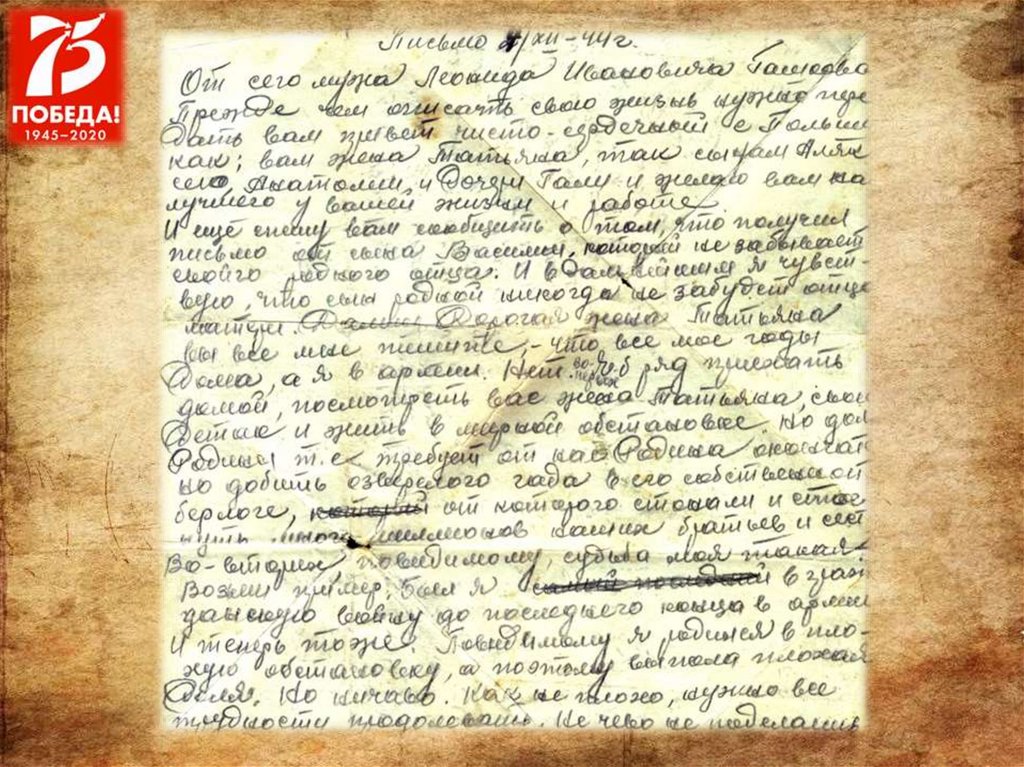 75
ПОБЕДА!
1945–2020
Письмо /XII-44 г.
От сего мужа Леонида Ивановича
Прежде чем описать свою жизнь нужно пере
дать вам привет чисто-сердечный с Польши
как; вам жена Татьяна, так сынам
Анатолию, и Дочери Гали и желаю вам на
лучшего у вашей жизни и работе.
И ещё спешу вам сообщить о том, что получил
письмо от сына Василия, который не забывает
свойго родного отца. И в дальнейшим я чувст-
вую, что сын родной никогда не забудет отца
матери. Дорогая жена Татьяна
вы все мне пишите, - что все мое годы
Дома, а я в армии. Нет во-первых рад приехать
домой, посмотреть вас жена Татьяна, свои
деток и жить в мирной обстановке. Но дол
Родины т.е. требует от нас Родина окончат
но добить озверелого гада в его собственной
берлоге, который от которого стонали и стог
нуть много миллионов наших братьев и сест
Во-вторых, повидимому, судьба моя такая.
Возми пример, был я самый последний в граж
данскую войну до последнего конца в армии
И теперь тоже. Повидимому я родился в пло-
хую обстановку, а поэтому выпала плохая
Доля. Но ничаво. Как не плохо, нужно все
трудности продолевать. Не чево не поделаешь